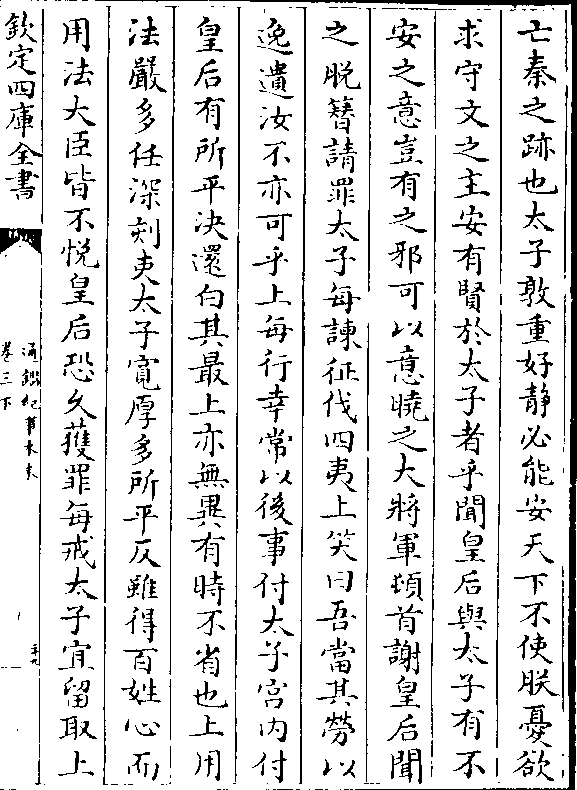 亡秦之跡也太子敦重好静必能安天下不使朕憂欲
求守文之主安有賢於太子者乎聞皇后與太子有不
安之意豈有之邪可以意曉之大將軍頓首謝皇后聞
之脱簪請罪太子每諫征伐四夷上笑曰吾當其勞以
逸遺汝不亦可乎上每行幸常以後事付太子宫内付
皇后有所平决還白其最上亦無異有時不省也上用
法嚴多任深刻吏太子寛厚多所平反雖得百姓心而
用法大臣皆不悦皇后恐久獲罪每戒太子宜留取上
欽定四庫全書
通鑑紀事本末
卷三下